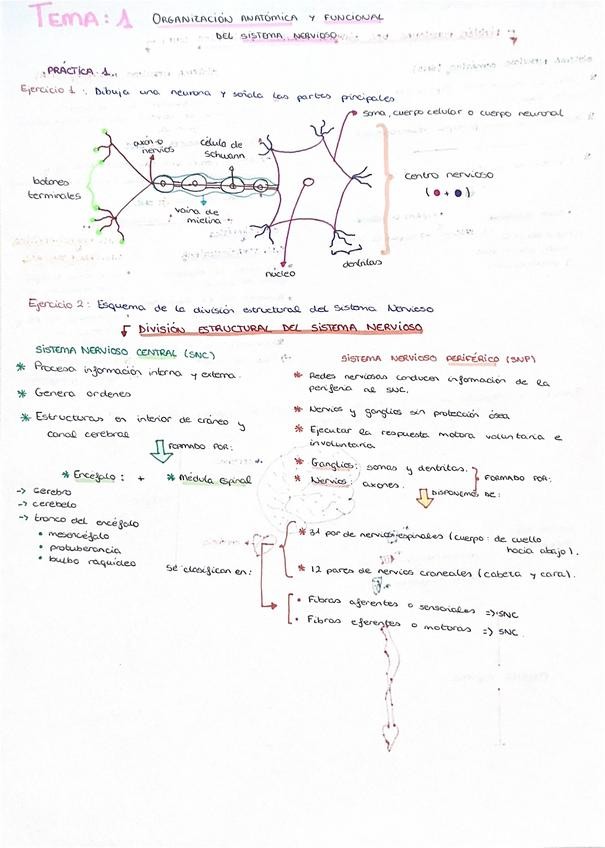 TEMA: 1 ORGANIZACIÓN ANATÓMICA Y FUNCIONAL
DEL SISTEMA NERVIOSO
PRÁCTICA 1.
Ejercicio 1: Dibuja una neurona y señala las partes principales
soma, cuerpo celular o cuerpo neuronal
axón o
nervios
célula de
Schwann
botones
terminales
centro nervioso
( + )
vaina de
mielina
núcleo
dentritas
Ejercicio 2: Esquema de la división estructural del Sistema Nervioso
DIVISIÓN ESTRUCTURAL DEL SISTEMA NERVIOSO
SISTEMA NERVIOSO CENTRAL (SNC)
* Procesa información interna y externa.
* Genera ordenes
* Estructuras en interior de cráneo y
canal cerebral
FORMADO POR:
* Encéfalo: + * Médula Espinal
-> cerebro
-> cerebelo
-> tronco del encéfalo
• mesencéfalo
• protuberancia
• bulbo raquídeo
SISTEMA NERVIOSO PERIFÉRICO (SNP)
* Redes nerviosas conducen información de la
periferia al SNC.
* Nervios y ganglios sin protección ósea
* Ejecutar la respuesta motora voluntaria e
involuntaria.
* Ganglios: somas y dentritas.
* Nervios: axones.
FORMADO POR:
DISPONEMOS DE:
* 31 par de nervios espinales (cuerpo: de cuello
hacia abajo).
* 12 pares de nervios craneales (cabeza y cara).
Se clasifican en:
• Fibras aferentes o sensoriales => SNC
• Fibras eferentes o motoras => SNC.